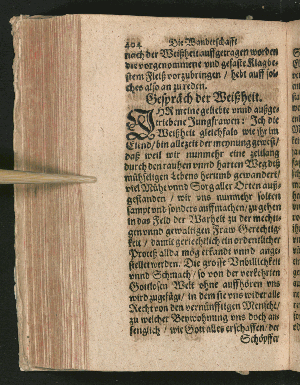 404 Die Wanderschafft
nach der Weißheit auffgetragen worden
die vorgenommene vnd gefaste Klag bestem
stem Fleiß vorzubringen / hebt auff solches
ches also an zu reden.
Gespräch der Weißheit.
IHR meine geliebte vnnd außgetriebene
triebene Jungfrawen: Ich die
Weißheit gleichfals wie ihr im
Elend / bin alle zeit der meynung gewest /
daß weil wir nunmehr eine zeitlang
durch den rauhen vnnd harten Weg diß
mühseligen Lebens herumb gewandert /
viel Mühe vnnd Sorg aller Orten außgestanden
gestanden / wir vns nunmehr solten
sampt vnd sonders auffmachen / zu gehen
in das Feld der Warheit zu der mechtigen
gen vnnd gewaltigen Fraw Gerechtigkeit
keit / damit gerichtlich ein ordentlicher
Proceß allda mög erkandt vnnd angestellet
stellet werden. Die grosse Vnbillichkeit
vnnd Schmach / so von der verkehrten
Gottlosen Welt ohne auffhören vns
wird zugefügt / in dem sie vns wider alle
Recht von den vernünfftigen Menschen /
zu welcher Beywohnung vns doch anfenglich
fenglich / wie Gott alles erschaffen / der
Schöpffer